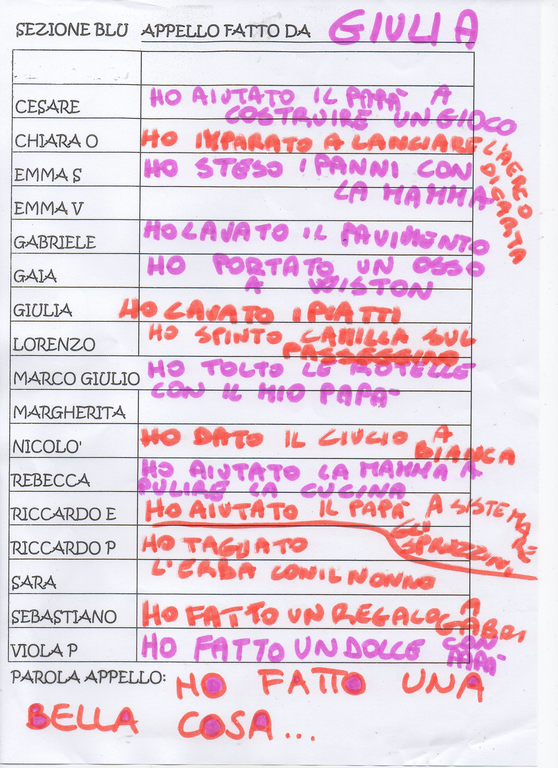 SEZIONE BLU APPELLO FATTO DA GIULIA
CESARE HO AIUTATO IL PAPÀ A
COSTRUIRE UN GIOCO
CHIARA O HO IMPARATO A LANCIARE L'AEREO
DI CARTA
EMMA S HO STESO I PANNI CON
LA MAMMA
EMMA V
GABRIELE HO LAVATO IL PAVIMENTO
GAIA HO PORTATO UN OSSO
A WISTON
GIULIA HO LAVATO I PIATTI
LORENZO HO SPINTO CAMILLA SUL
PASSEGGINO
MARCO GIULIO HO TOLTO LE ROTELLE
CON IL MIO PAPÀ
MARGHERITA
NICOLO' HO DATO IL CIUCIO A
BIANCA
REBECCA HO AIUTATO LA MAMMA A
PULIRE LA CUCINA
RICCARDO E HO AIUTATO IL PAPÀ A SISTEMARE
GLI
SPRUZZINI
RICCARDO P HO TAGLIATO
L'ERBA CON IL NONNO
SARA
SEBASTIANO HO FATTO UN REGALO A
GABRI
VIOLA P HO FATTO UN DOLCE CON
PAPÀ
PAROLA APPELLO: HO FATTO UNA
BELLA COSA...